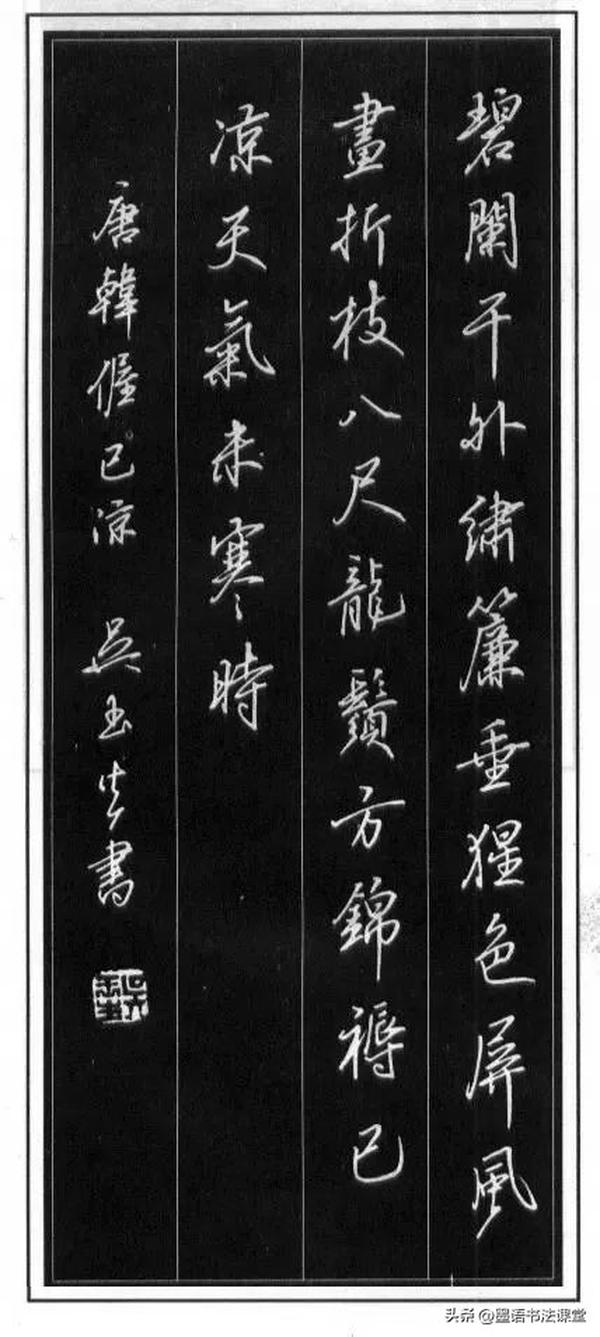 碧闌干外繡簾垂猩色屏風
畫折枝八尺龍鬚方錦褥已
涼天氣未寒時
唐韓偓已涼 吳玉生書
头条 @墨语书法课堂